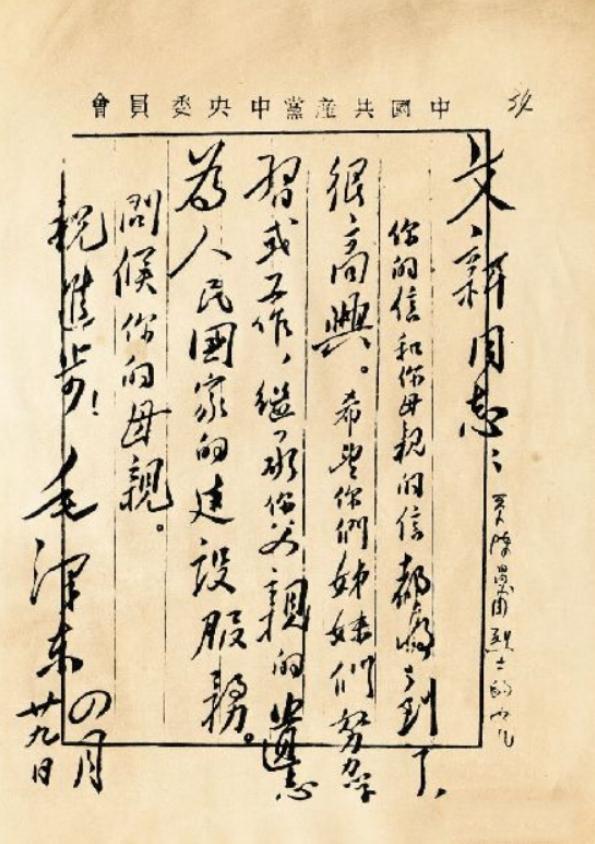 中國共產黨中央委員會
文新同志：
你的信和你母親的信都收到了，
很高興。希望你們姊妹們努力學
習或工作，繼承你父親的遺志
為人民國家的建設服務。
問候你的母親。
祝進步！
毛澤東
四月
廿九日
烈士的女儿